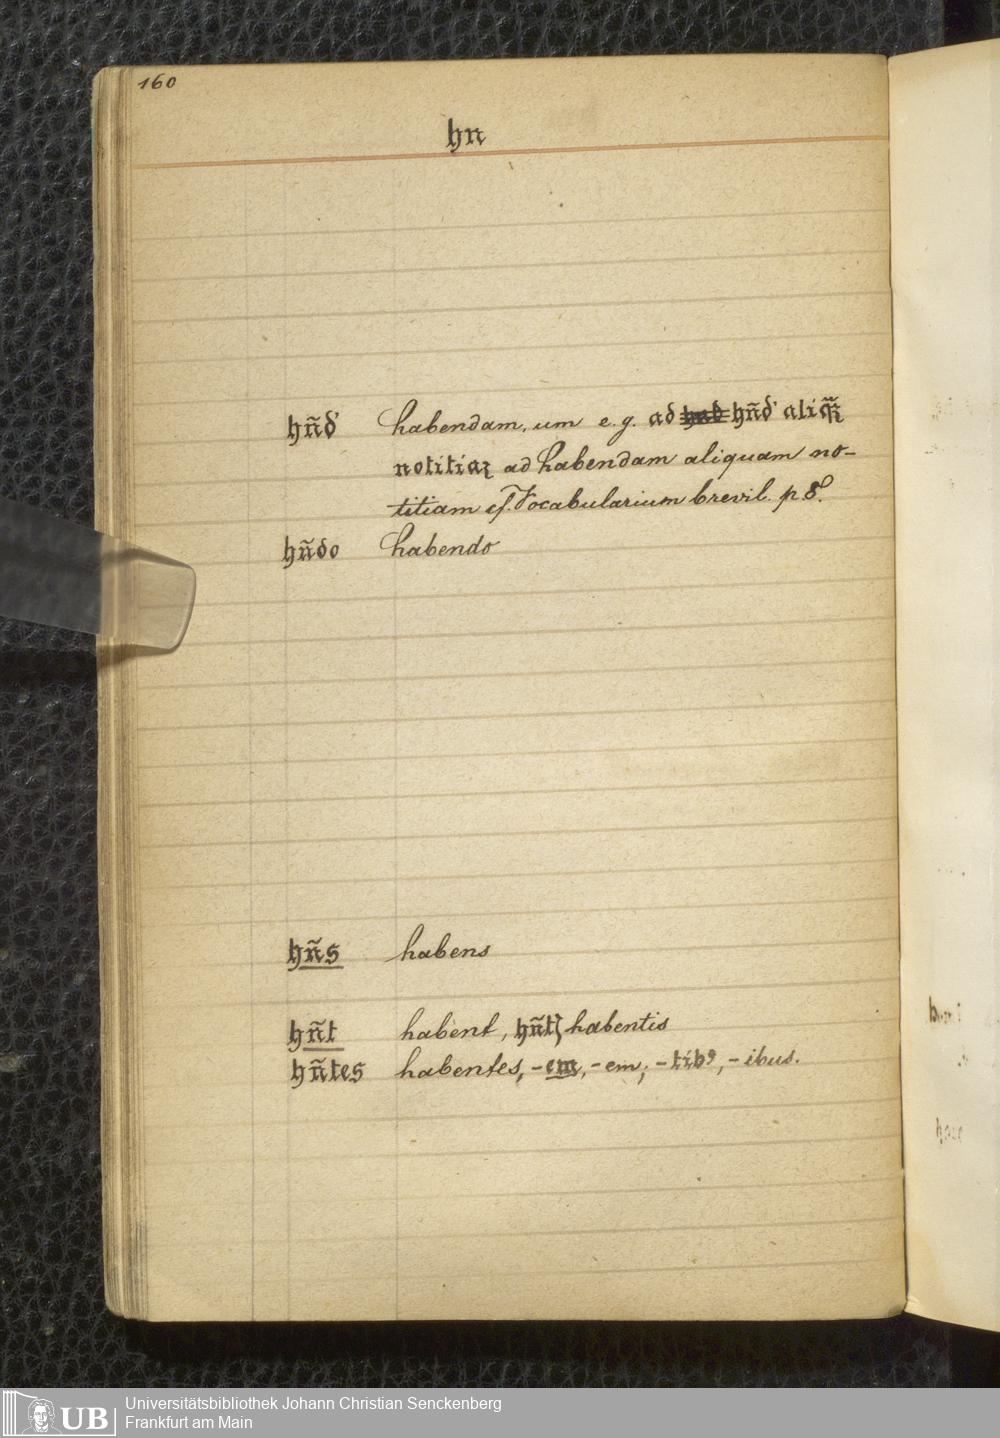 160
hn
hñd' habendam, um e.g. ad hñd' aliq̃ꝫ
notitiaꝫ ad habendam aliquam no-
titiam cf. Vocabularium brevil. p 8.
hñdo habendo
hñs habens
hñt habent, hñtꝫ habentis
hñtes habentes, -em, -em; -tibꝰ, -ibus.
Universitätsbibliothek Johann Christian Senckenberg
Frankfurt am Main
UB